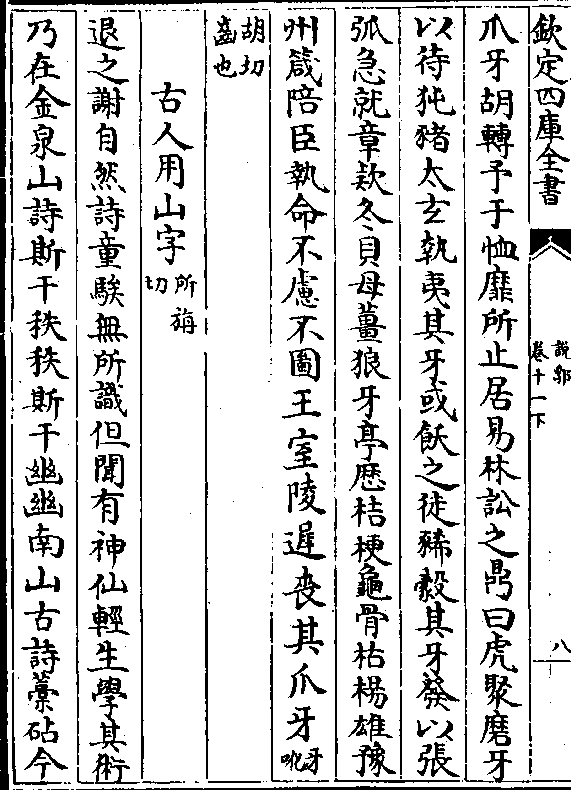 欽定四庫全書
說郛
卷十一下
八
爪牙胡轉予于恤靡所止居易林訟之鼎曰虎聚磨牙
以待犲豬太玄執夷其牙或飫之徒豨毅其牙發以張
弧急就章欵冬貝母薑狼牙亭歷桔梗龜骨枯楊雄豫
州箴陪臣執命不慮不圖王室陵遲喪其爪牙牙吪
胡切
齒也
古人用山字所旃
切
退之謝自然詩童騃無所識但聞有神仙輕生學其術
乃在金泉山詩斯干秩秩斯干幽幽南山古詩藁砧今